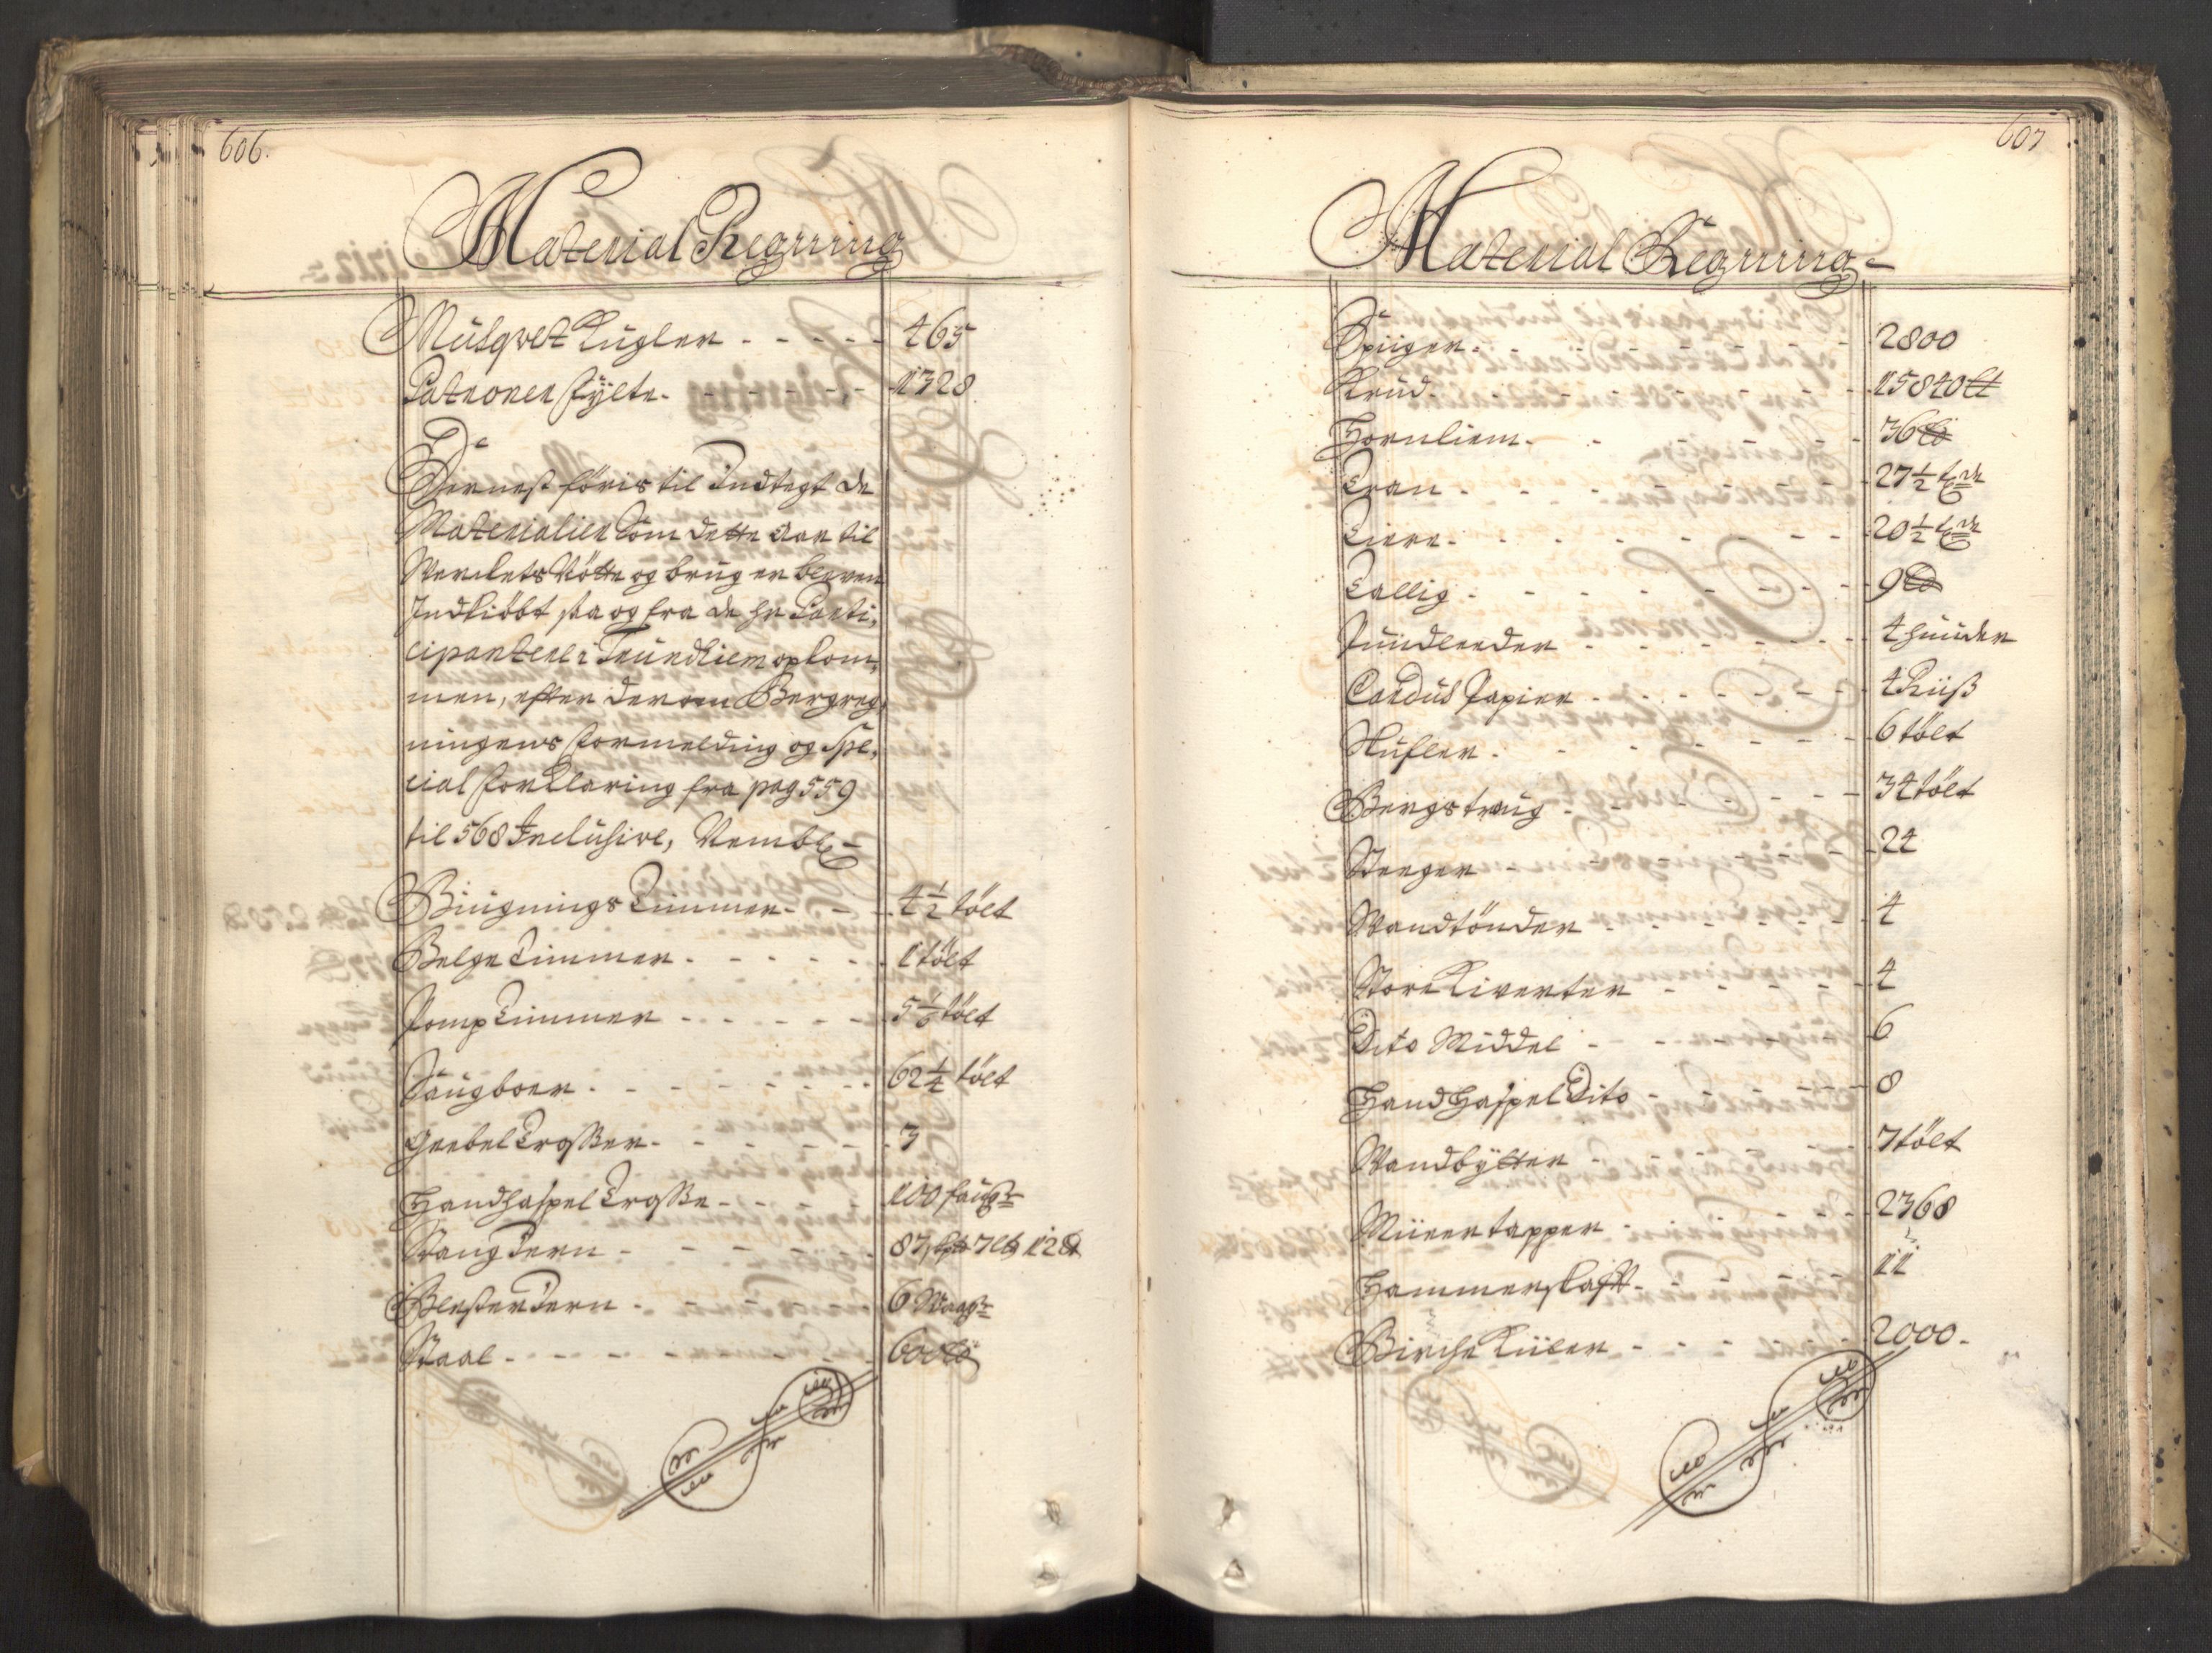 606.
Material Regning
Musqvet Kugler - - - - - 465
Patroner fylte - - - - - 1328
Dernest föris til Indtegt de
Materialier Som dette Aar til
Werckets Nötte og brug er bleven
Indkiöbt sa og fra de hr Parti,
cipantere i Trundhiem opkom,
men, efter derom Bergreg,
ningens formelding og Spe,
cial forklaring fra pag 559
til 568 Inclusive, Nembl:
Biugnings Timmer - - - 4½ tölt
Belge Timmer - - - - - 1 tölt
Pomp Timmer - - - - - 5 1/6 tölt
Saugboer - - - - - - - 62¼ tölt
Geebel Trosser - - - - - - 3
Handhaspel Trosse - - - - 100 faufn
Stang Jern - - - - - - 87 7 12
Blester Jern - - - - - - 6 Waag
Staal - - - - - - - - 600
607
Material Regning
Spiiger - - - - - - - 2800
Krud - - - - - - - 15840
Hornliem - - - - - - 36
Tran - - - - - - - 27½ tde
Tiere - - - - - - - 20½ tde
Tallig - - - - - - - 9
Pundleeder - - - - - - 4 huuder
Cardus Papier - - - - - 4 Riiß
Hufler - - - - - - - 6 tölt
Bergstraug - - - - - - 34 tölt
Steeger - - - - - - - 24
Wandtönder - - - - - - 4
Store Kiverter - - - - - 4
Dito Middel - - - - - - 6
Handhaspel Dito - - - - - 8
Wandbytter - - - - - - 7 tölt
Muurtapper - - - - - - 2368
Hammerskafft - - - - - 11
Birche Kiiler - - - - - - 2000.